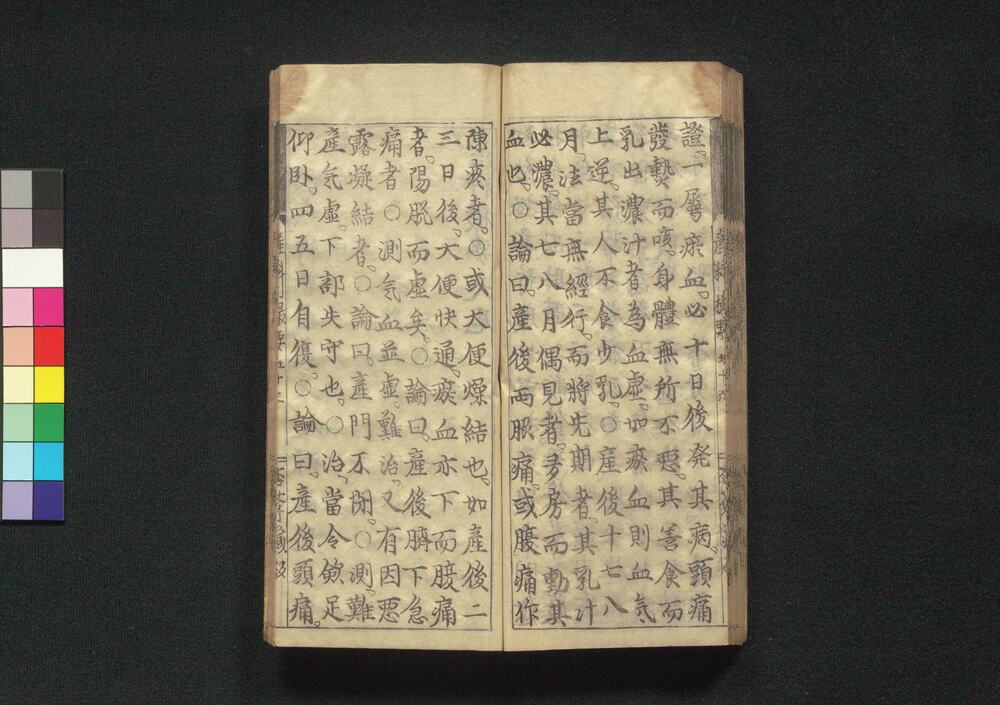 證一屬瘀血必十日後発其病頭痛
發熱而咳身體無所不惡其善食而
乳出濃汁者為血虛如瘀血則血氣
上逆其人不食少乳○産後十七八
月法當無經行而將先期者其乳汁
必濃其七八月偶見者多房而動其
血也○論曰産後両眼痛或腹痛作
陳疼者○或大便燥結也如産後二
三日後大便快通瘀血亦下而腹痛
者陽脱而虛矣○論曰産後臍下急
痛者○測氣血並虛難治又有因惡
露凝結者○論曰産門不閉○測難
産気虛下部失守也○治當令斂足
仰卧四五日自復○論曰産後頭痛